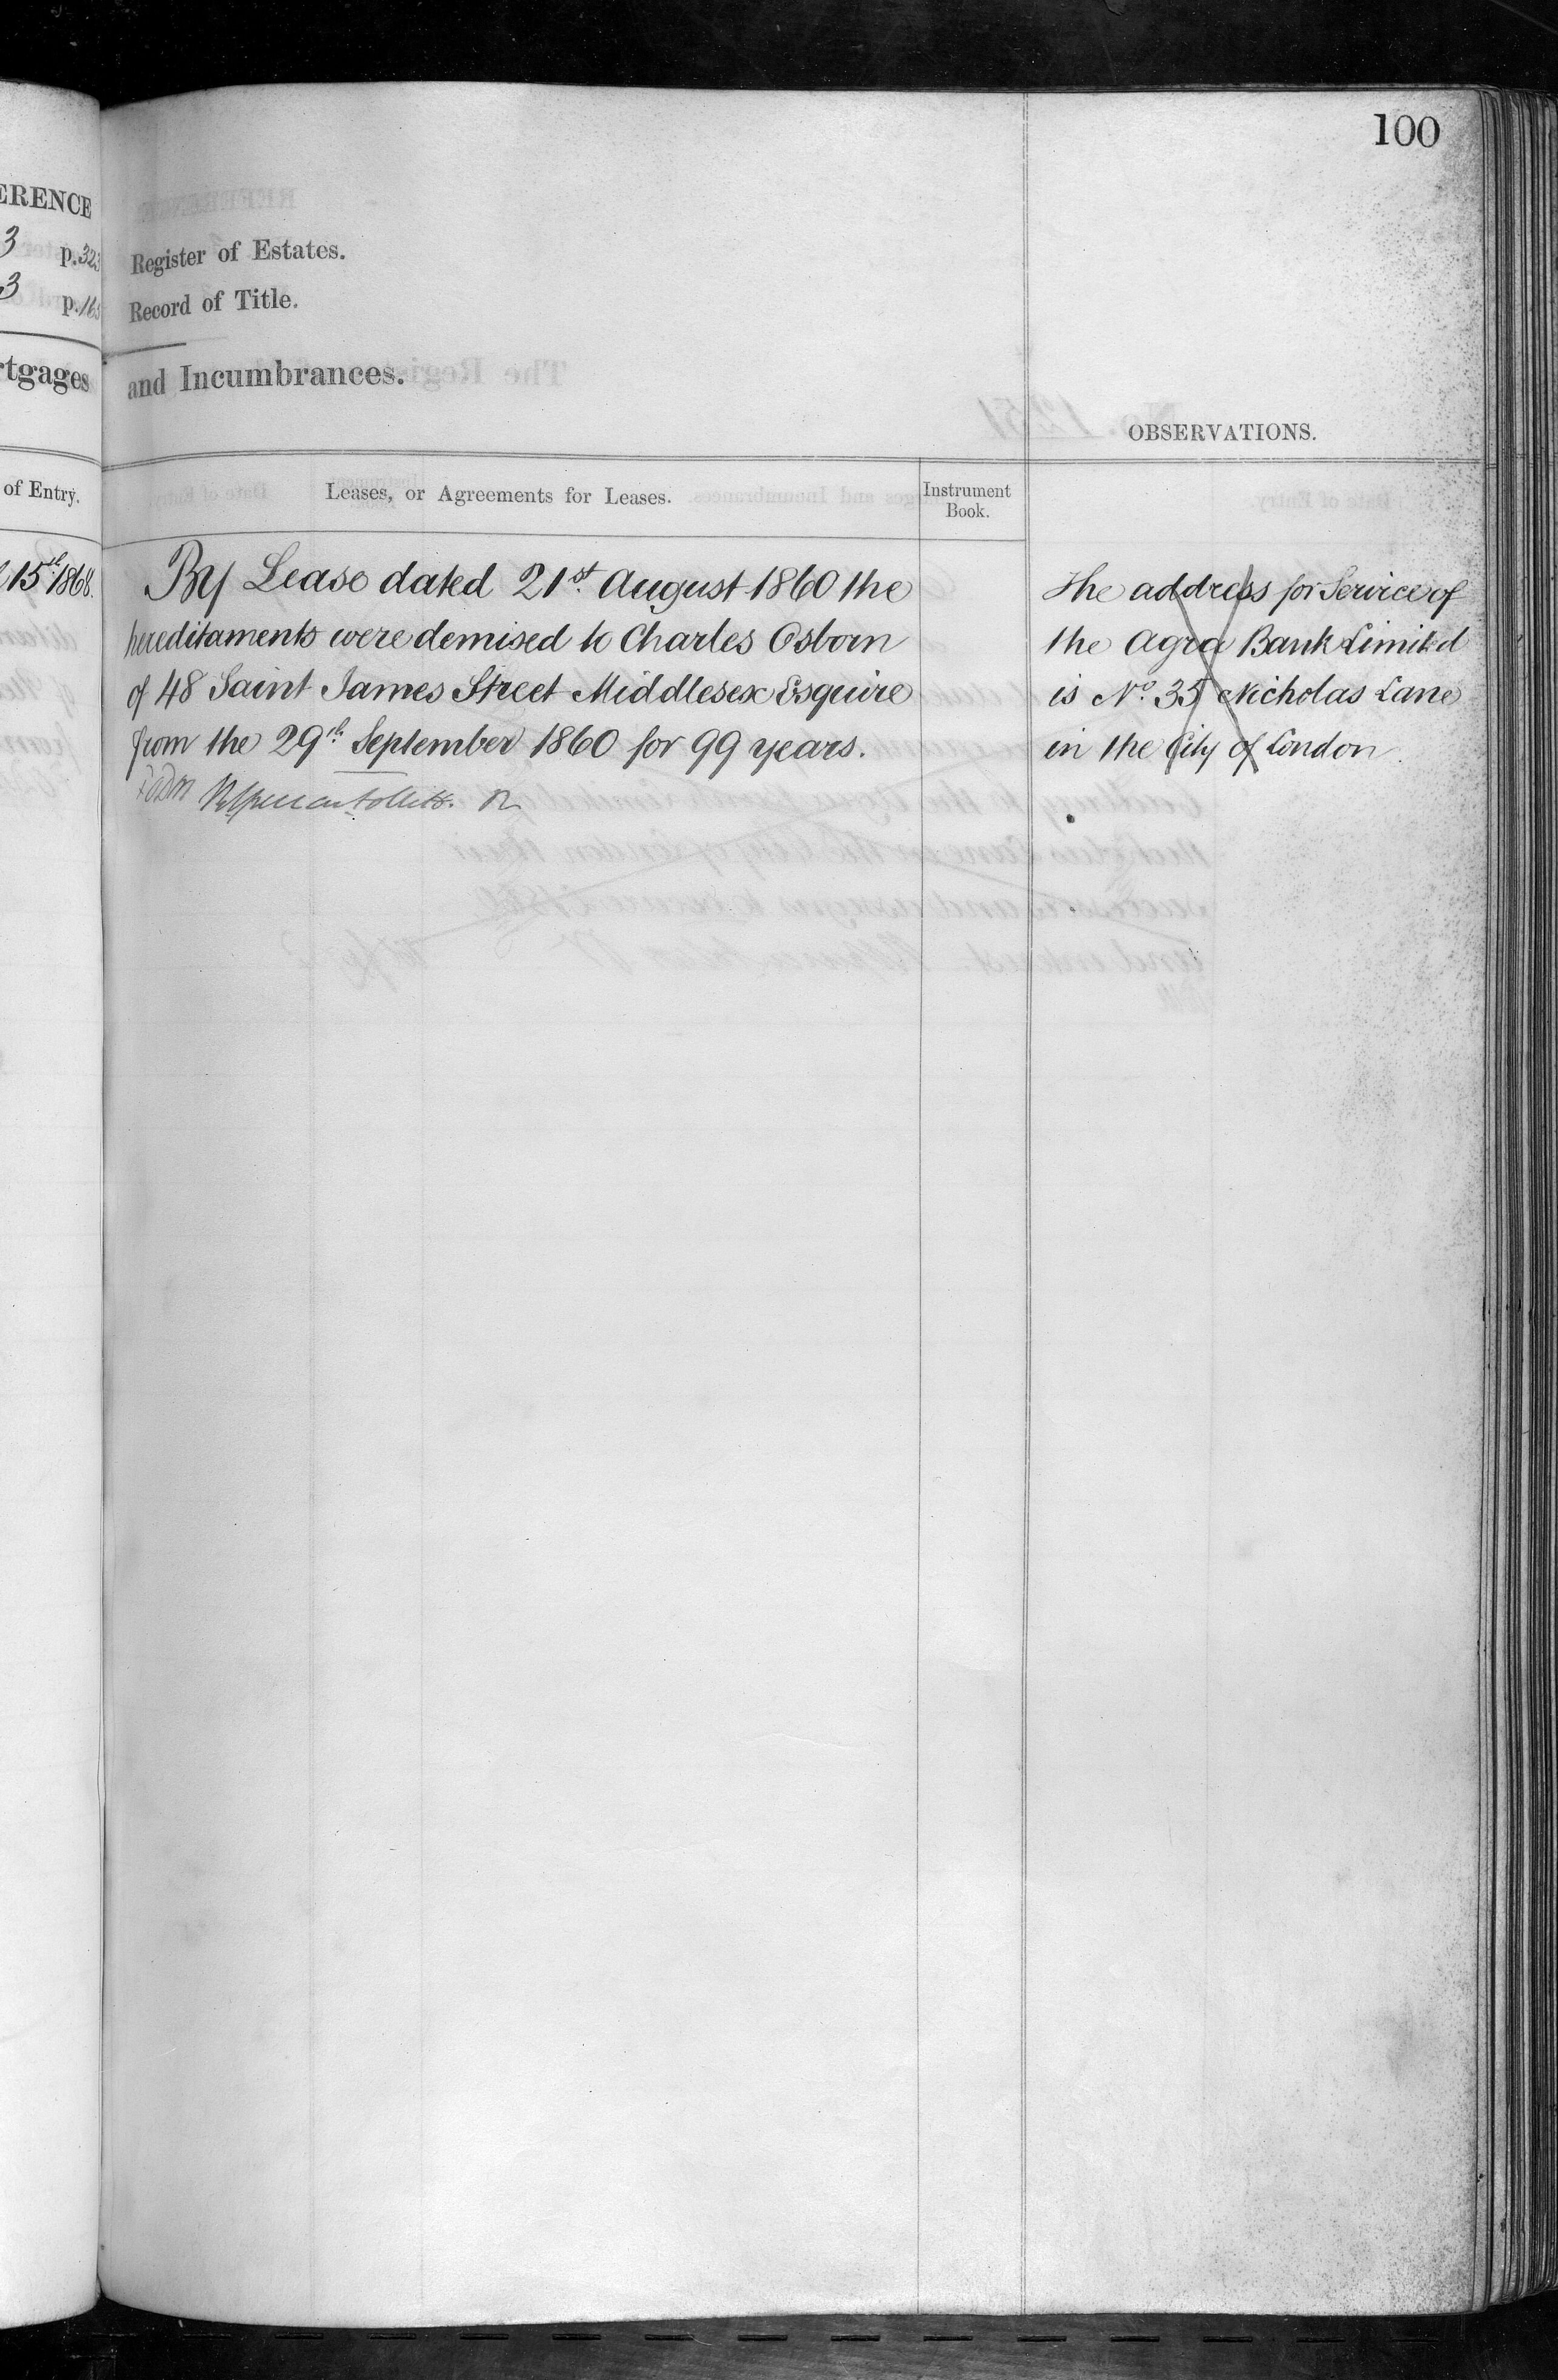 100
ERENCE
3 p. 323
3 p.
Register of Estates.
Record of Title.
rtgages
and Incumbrances.
OBSERVATIONS.
of Entry.
Leases, or Agreements for Leases.
Instrument
Book.
15th 1868.
By Lease dated 21st August 1860 the
hereditaments were demised to Charles Osborn
of 48 Saint James Street Middlesex Esquire
from the 29th September 1860 for 99 years.
The address for Service of
the Agra Bank Limited
is No. 35 Nicholas Lane
in the City of London